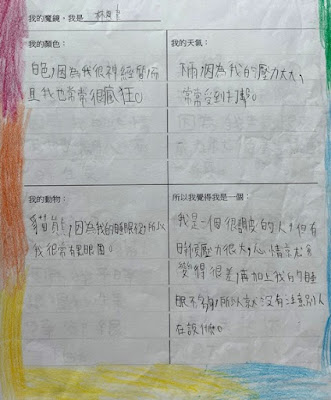 我的魔鏡，我是
我的顏色：
白色，因為我很神經質，而
且我也常常很瘋狂。
我的天氣：
下雨，因為我的壓力太大，
常常受到打擊。
我的動物：
貓熊，因為我的睡眠很少，所以
我很常有黑眼圈。
所以我覺得我是一個：
我是一個很調皮的人，但有
時候壓力很大，心情就會
變得很差，再加上我的睡
眠不夠，所以就沒有注意別人
在說什麼。